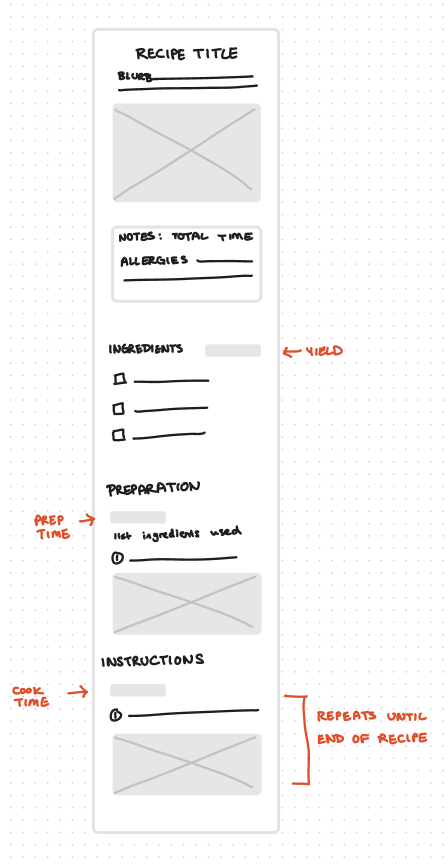 RECIPE TITLE
BLURB
NOTES: TOTAL TIME
ALLERGIES
INGREDIENTS
← YIELD
PREPARATION
PREP → 
TIME
list ingredients used
①
INSTRUCTIONS
COOK →
TIME
①
REPEATS UNTIL
END OF RECIPE